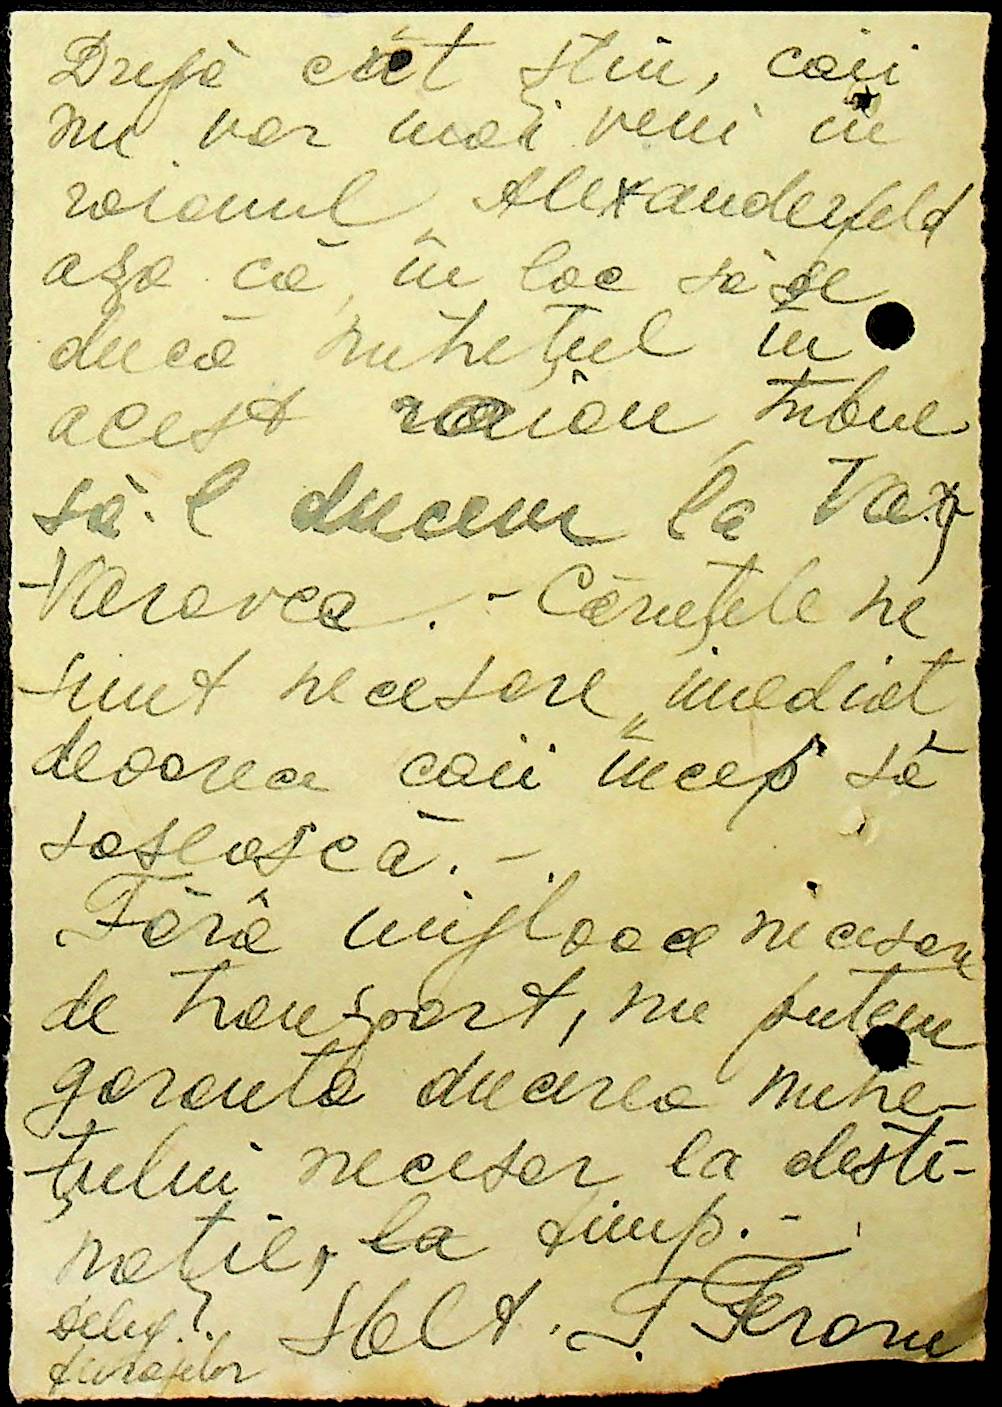 După cât știu, caii
nu vor mai veni în
raionul Alexanderfeld
așa că, în loc să se
ducă nutrețul în
acest raion, trebue
să-l ducem la Vaz
Varovca. - Căruțele ne
sunt necesare "imediat
deoarece caii încep să
sosească. -
Fără mijloace necesare
de transport, nu putem
garanta ducerea nutre-
țului necesar la desti-
nație, la timp. -
Deleg.
furajelor Slt. T. Feraru